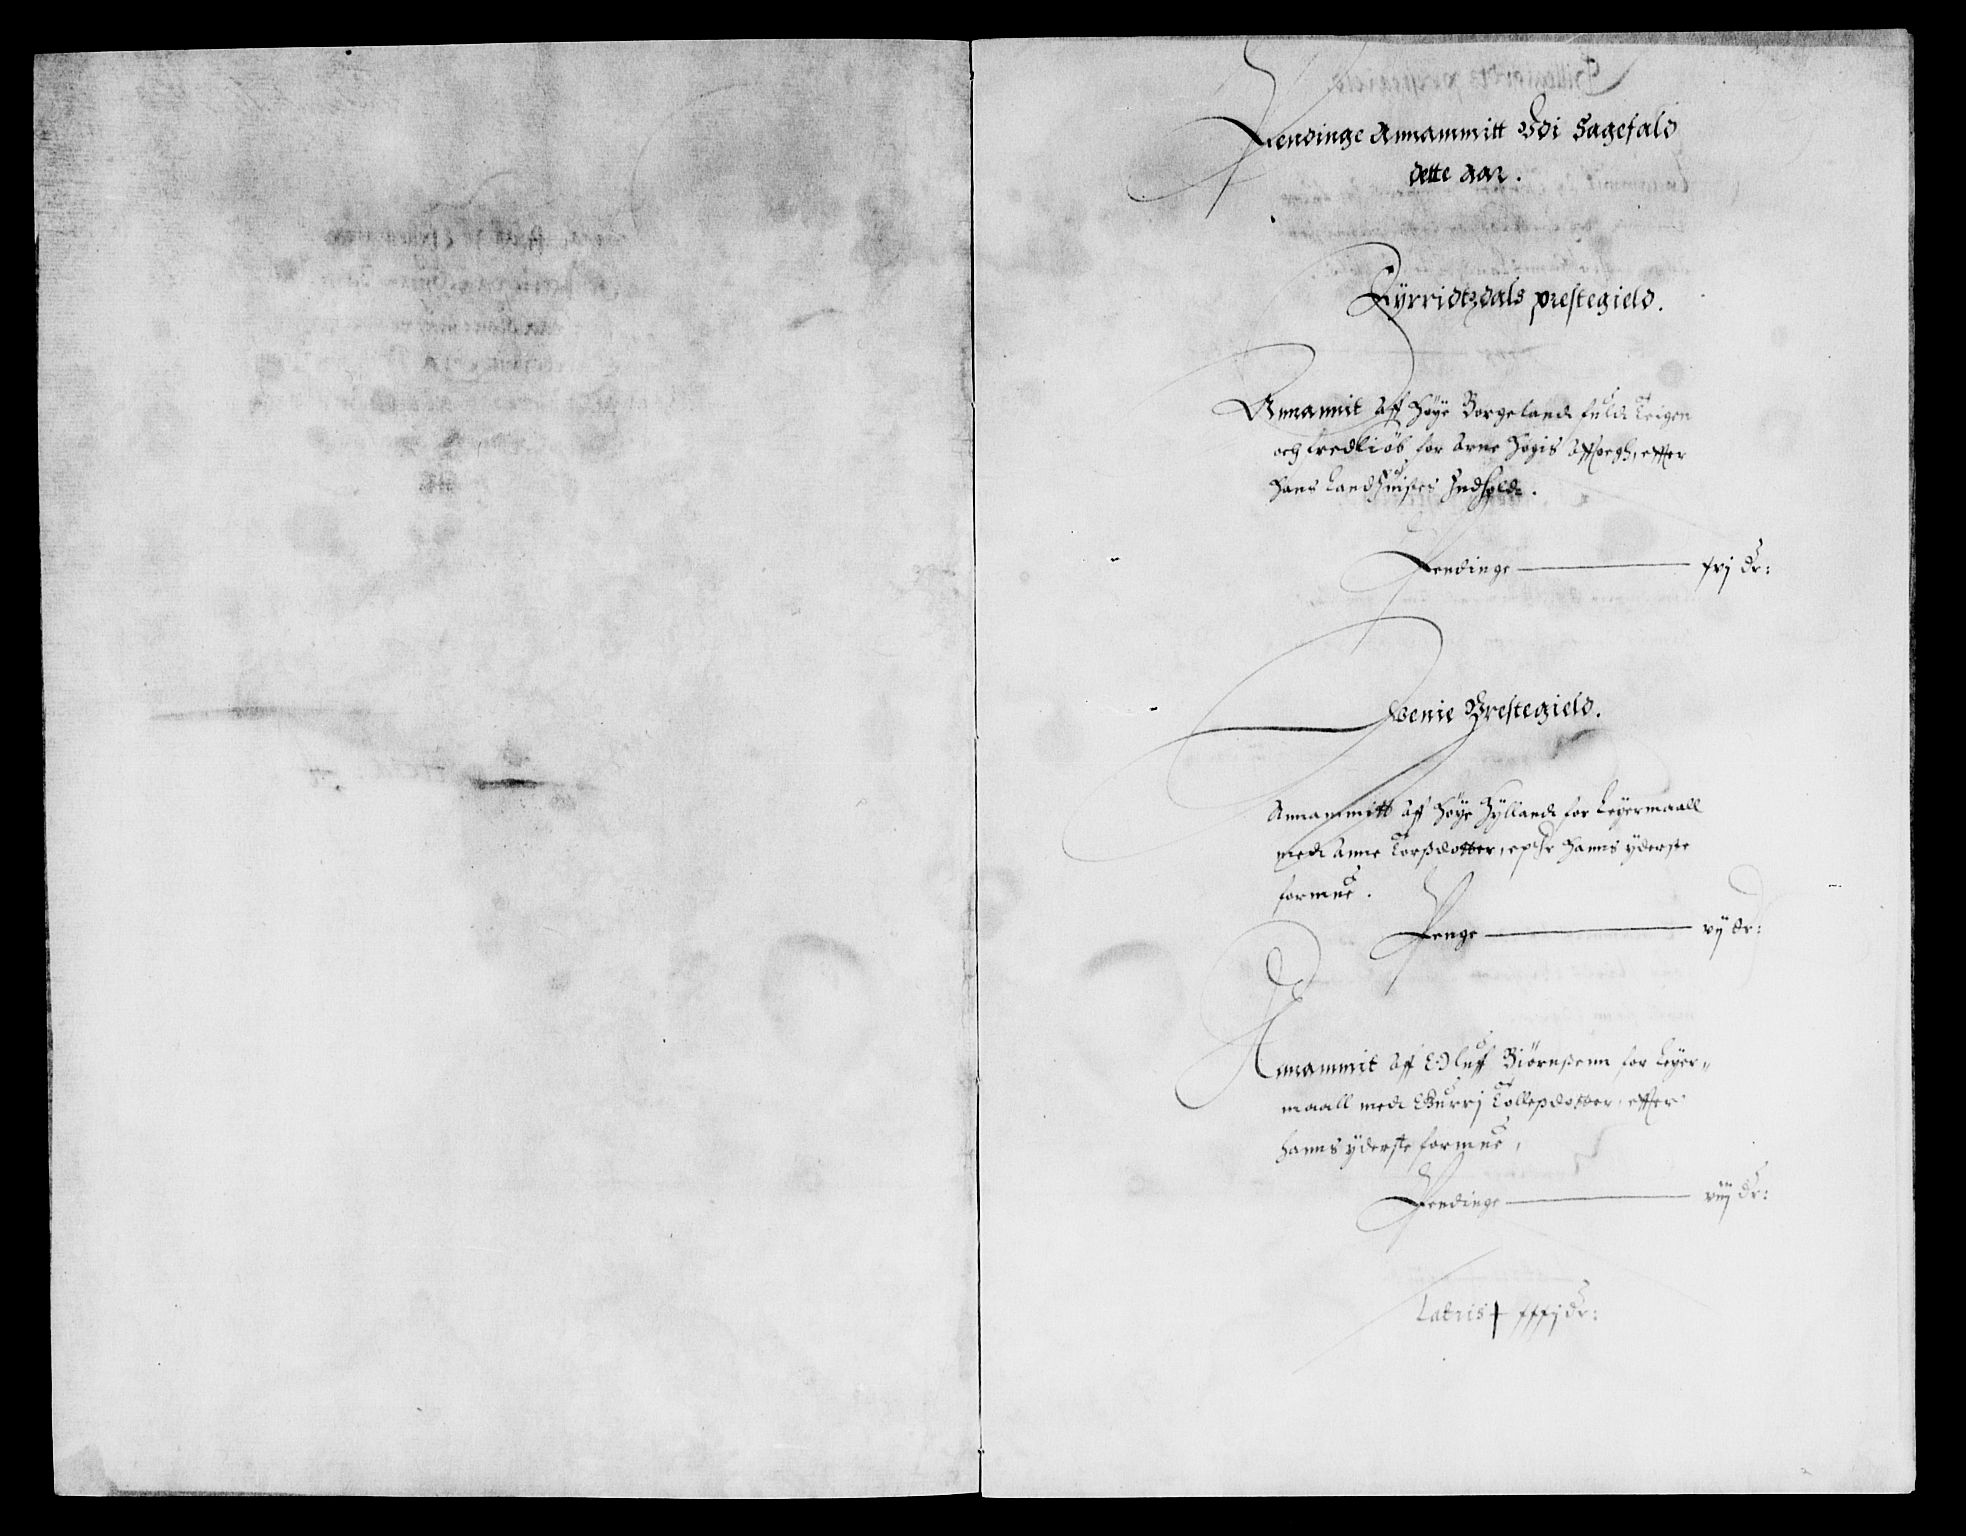 Pendinge Annammitt Vdi Sagefald
dette aar.
Fyrridtzdals prestegield.
Annamit Aff Høye Borgeland fuld Teigen
och fredkiøb for Arne Høgis Affoegh, effter
hans Landhuises Indhold.
Pendinge — xvj dr:
Hvenie Prestegield.
Annammitt Aff Høye Hylland for Leyermaall
med Anne Torsdotter, epter hanns yderste
formue.
Penge — vij dr:
Annammit Aff Oluff Biørnsenn for Leyer„
maall med Gurrj Tollepsdotter, effter
hanns yderste formue,
Pendinge — viij dr:
Latris xxxj dr: